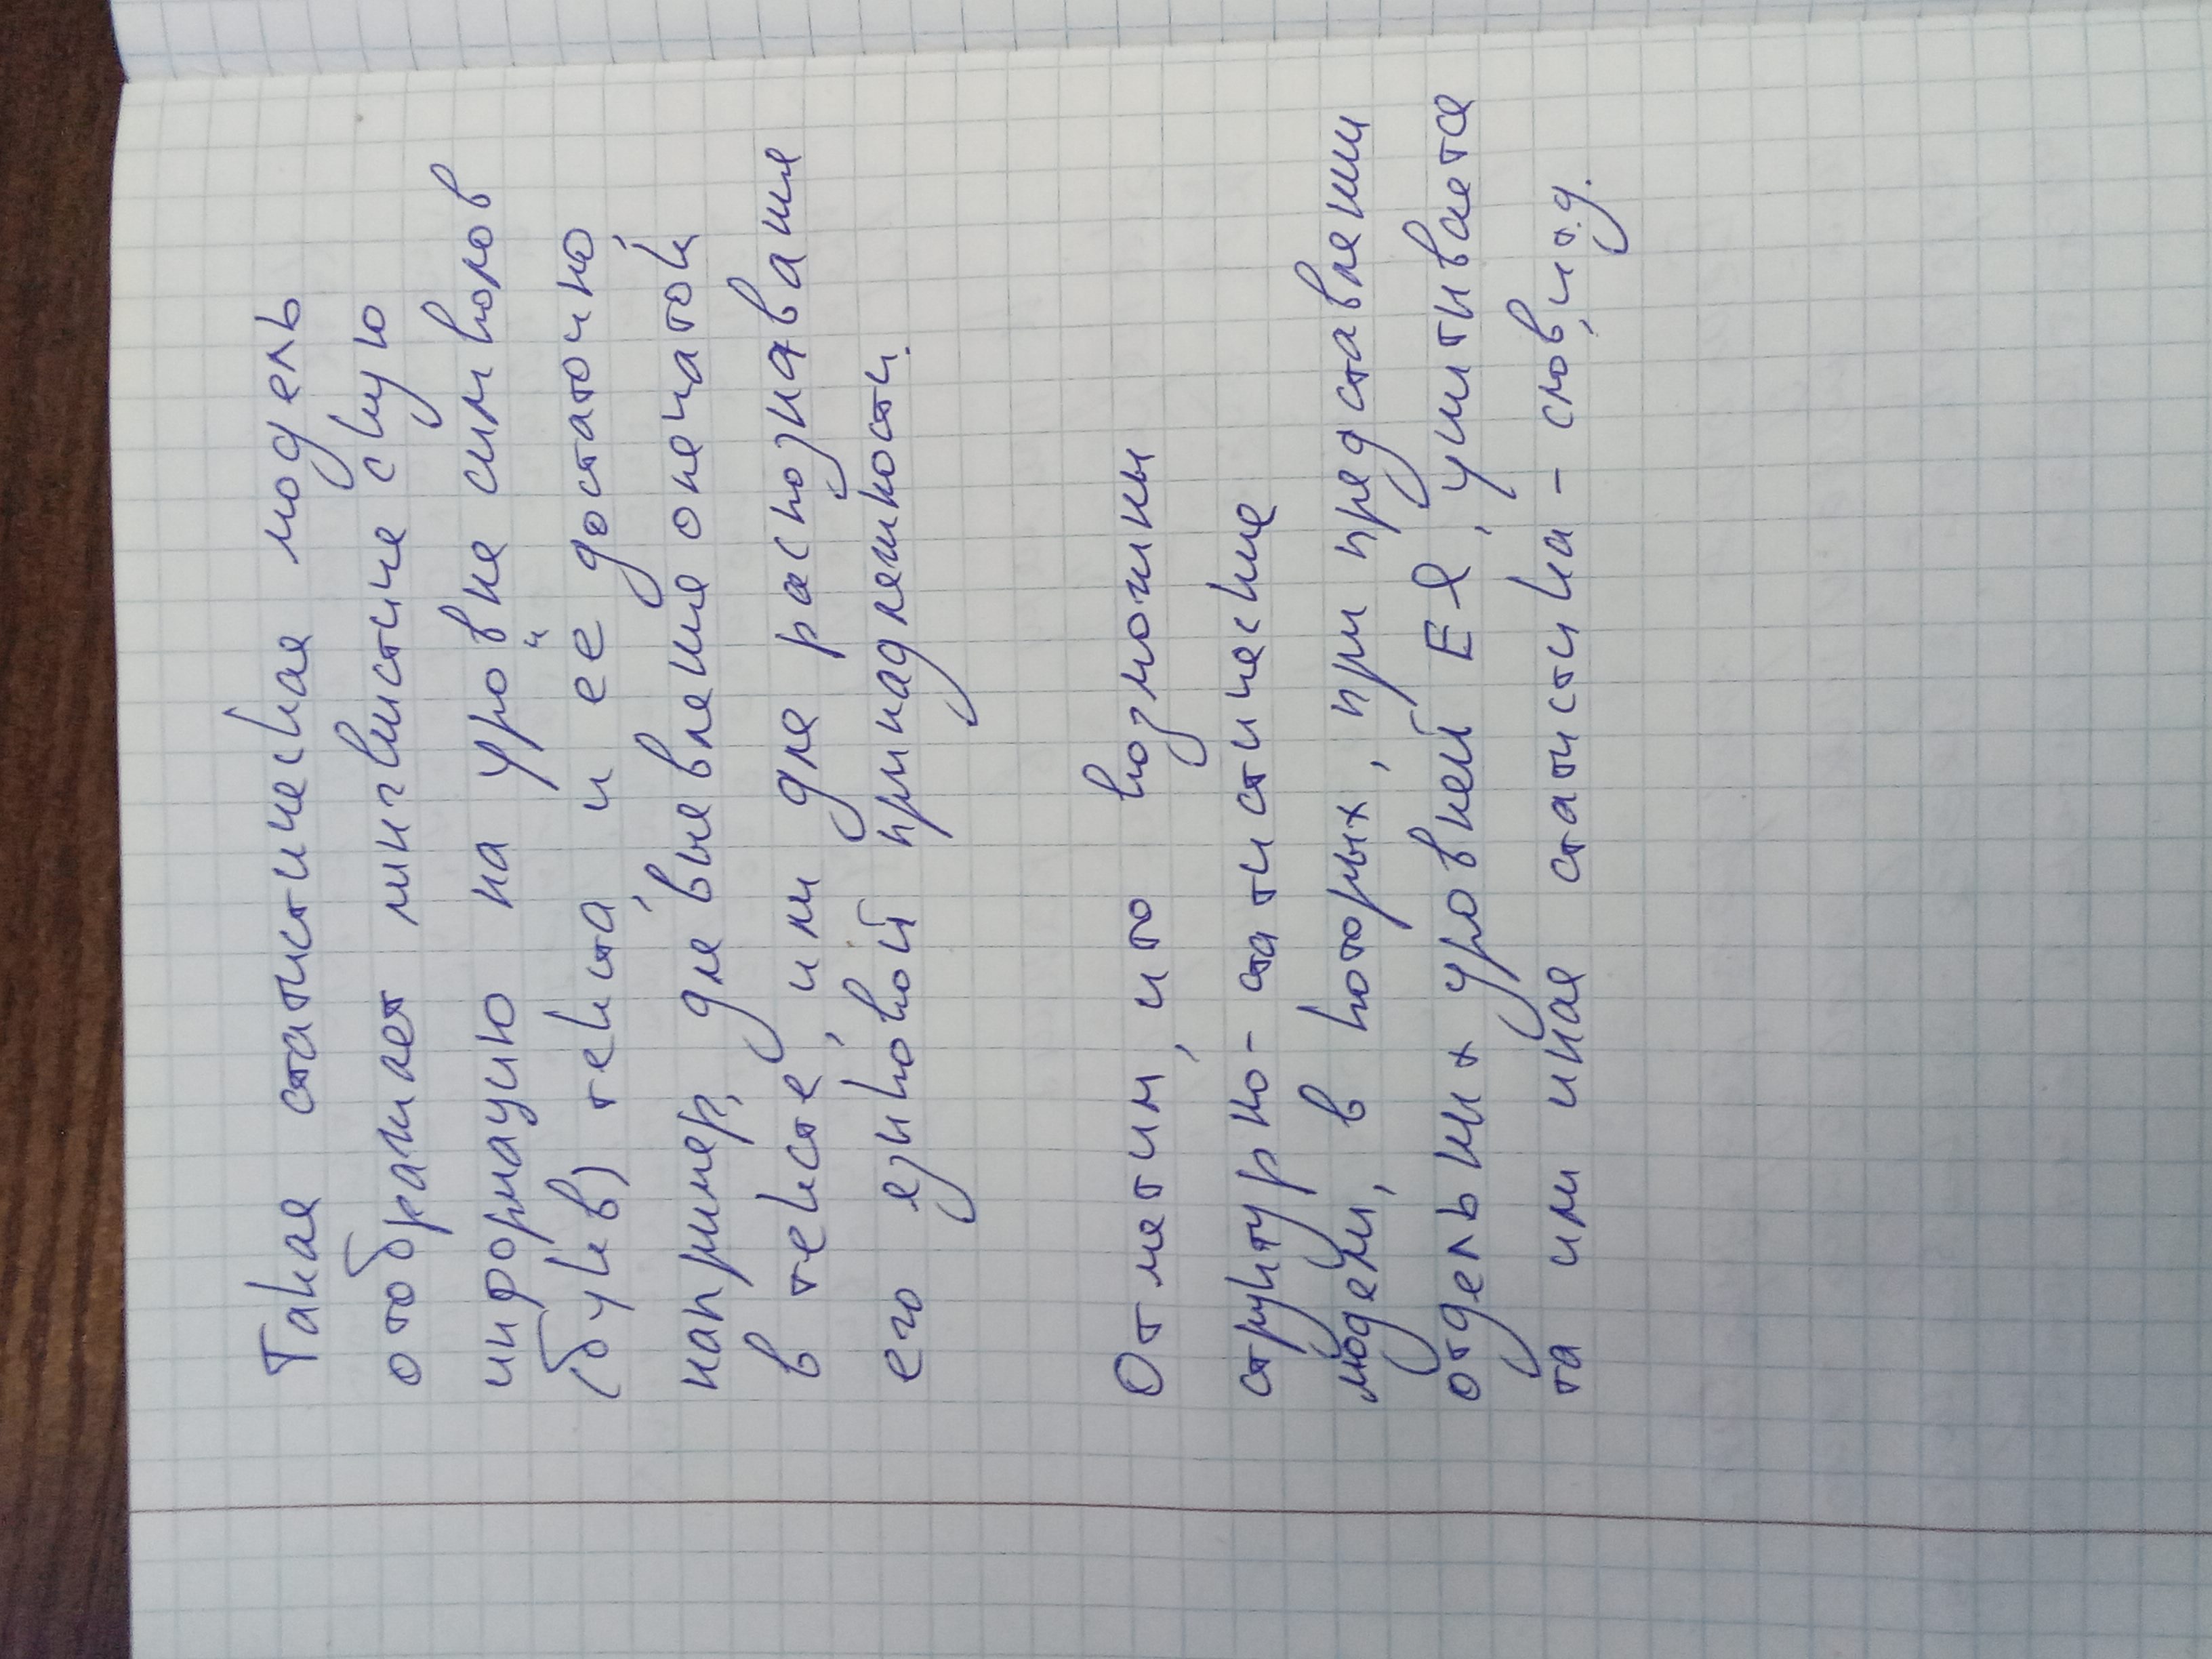 Такая статистическая модель
отображает лингвистическую
информацию на уровне символов
(букв) текста, и её достаточно,
например, для выявления опечаток
в тексте, или для распознавания
его языковой принадлежности.
Отметим, что возможны
структурно-статистические
модели, в которых, при представлении
отдельных уровней ЕЯ, учитывается
та или иная статистика – слов, и т.д.